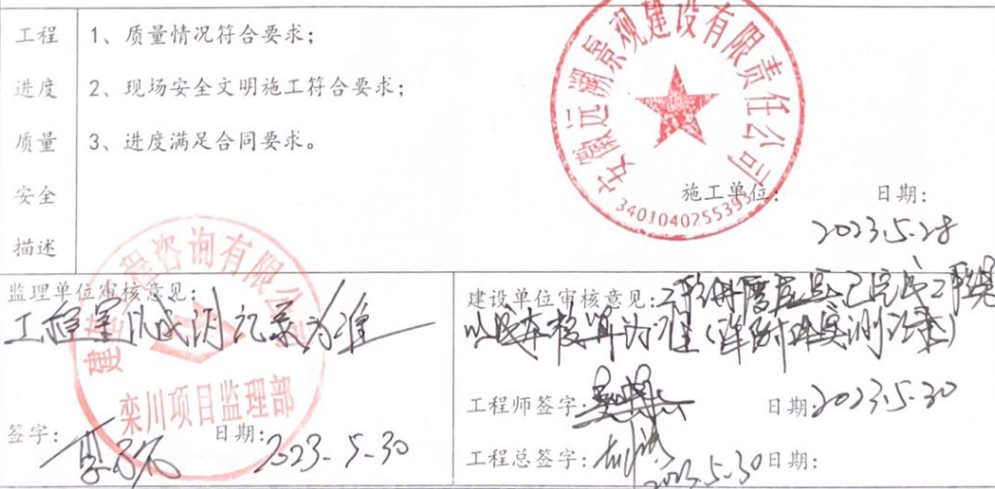 工程 进度 质量 安全 描述
1、质量情况符合要求；
2、现场安全文明施工符合要求；
3、进度满足合同要求。
安徽远湖景观建设有限责任公司
3401040255393
施工单位： 日期：
2023.5.28
监理单位审核意见：
工程量以实测记录为准
程咨询有限公
栾川项目监理部
签字： 日期：2023.5.30
建设单位审核意见：
以成本核算为准（详附现实测记录）
工程师签字： 日期：2023.5.30
工程总签字： 2023.5.30日期：